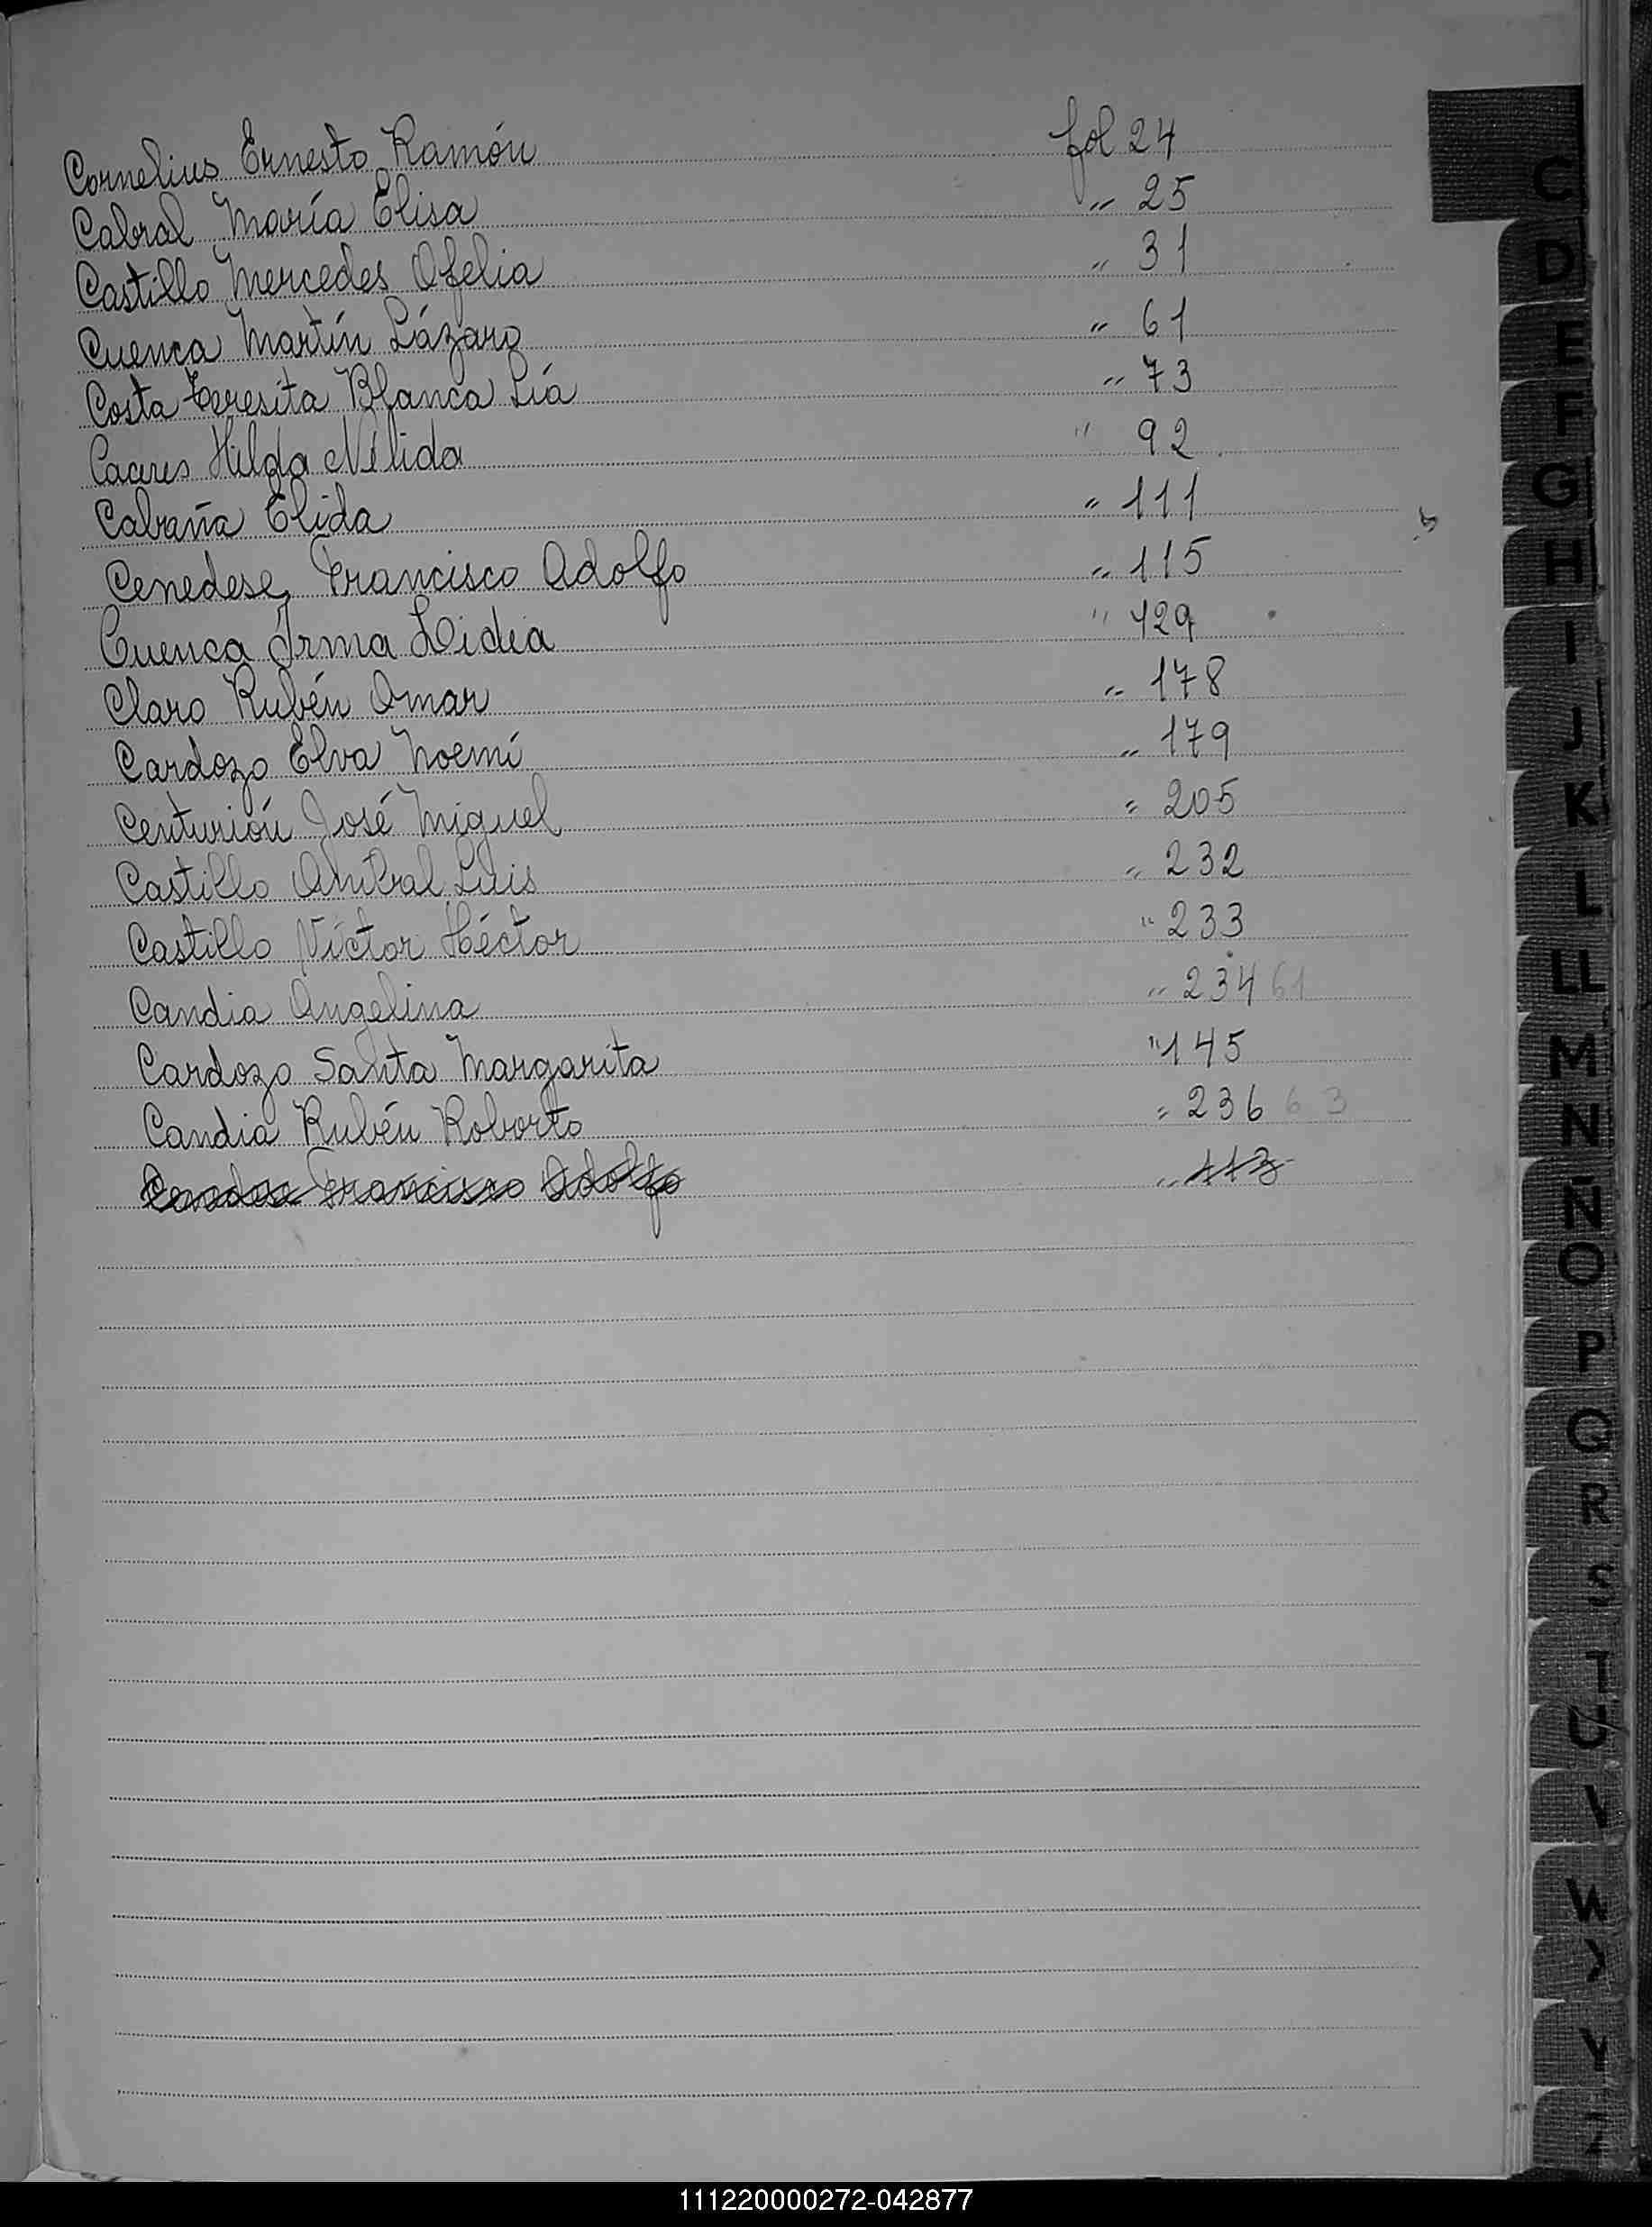 Cornelius Ernesto Ramón fol 24
Cabral María Elisa " 25
Castillo Mercedes Ofelia " 31
Cuenca Martín Lázaro " 61
Costa Teresita Blanca Lía " 73
Caceres Hilda Nélida " 92
Cabaña Elida " 111
Cenedese, Francisco Adolfo " 115
Cuenca Irma Lidia " 129
Claro Rubén Omar " 178
Cardozo Elva Noemí " 179
Centurión José Miguel " 205
Castillo Anibal Luis " 232
Castillo Víctor Héctor " 233
Candia Angelina " 234 61
Cardozo Santa Margarita " 145
Candia Rubén Roberto " 236 63
Francisco Adolfo "
C
D
E
F
G
H
I
J
K
L
LL
M
N
Ñ
O
P
Q
R
S
T
U
V
W
Y
Z
111220000272-042877